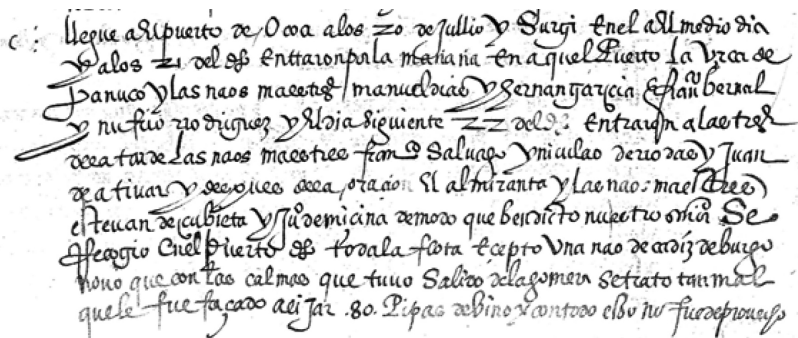 llegue a el puerto de Ocoa a los 20 de jullio y surgi en el a el medio dia
y a los 21 del dho entraron por la mañana en aquel puerto la urca de
panuco y las naos maestres manuel dias y hernan garcia e franco bernal
y nufrio rrodriguez y el dia siguiente 22 del dho entraron a las tres
de la tarde las naos maestres franco salvago y niculao de rodas y Juan
de ativar y despues de la oracion El almiranta y las naos maestres
estevan de cubieta y juo de micina de modo que bendicto nuestro señor Se
Recogio en el puerto dho toda la flota ecepto Una nao de cadiz de burgo
nono que con las calmas que tuvo Salido de la gomera se trato tan mal
que le fue façado aeijar .80. Pipas de bino y con todo esso no fue de provecho